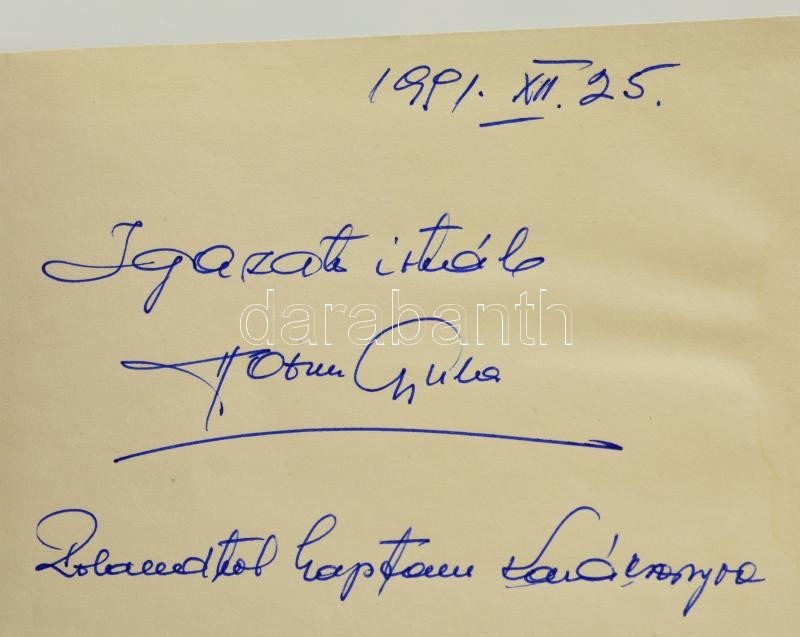 1991. XII. 25.
Igazat írták
darabanth
Gyula
Rolandtól kaptam Karácsonyra